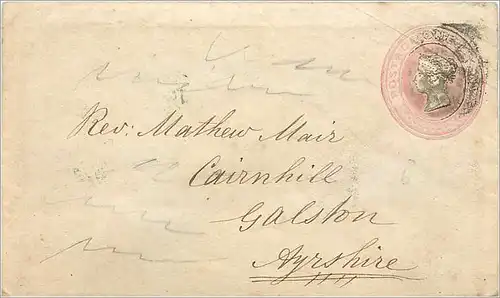 POSTAGE
Rev: Mathew Mair
Cairnhill
Galston
Ayrshire